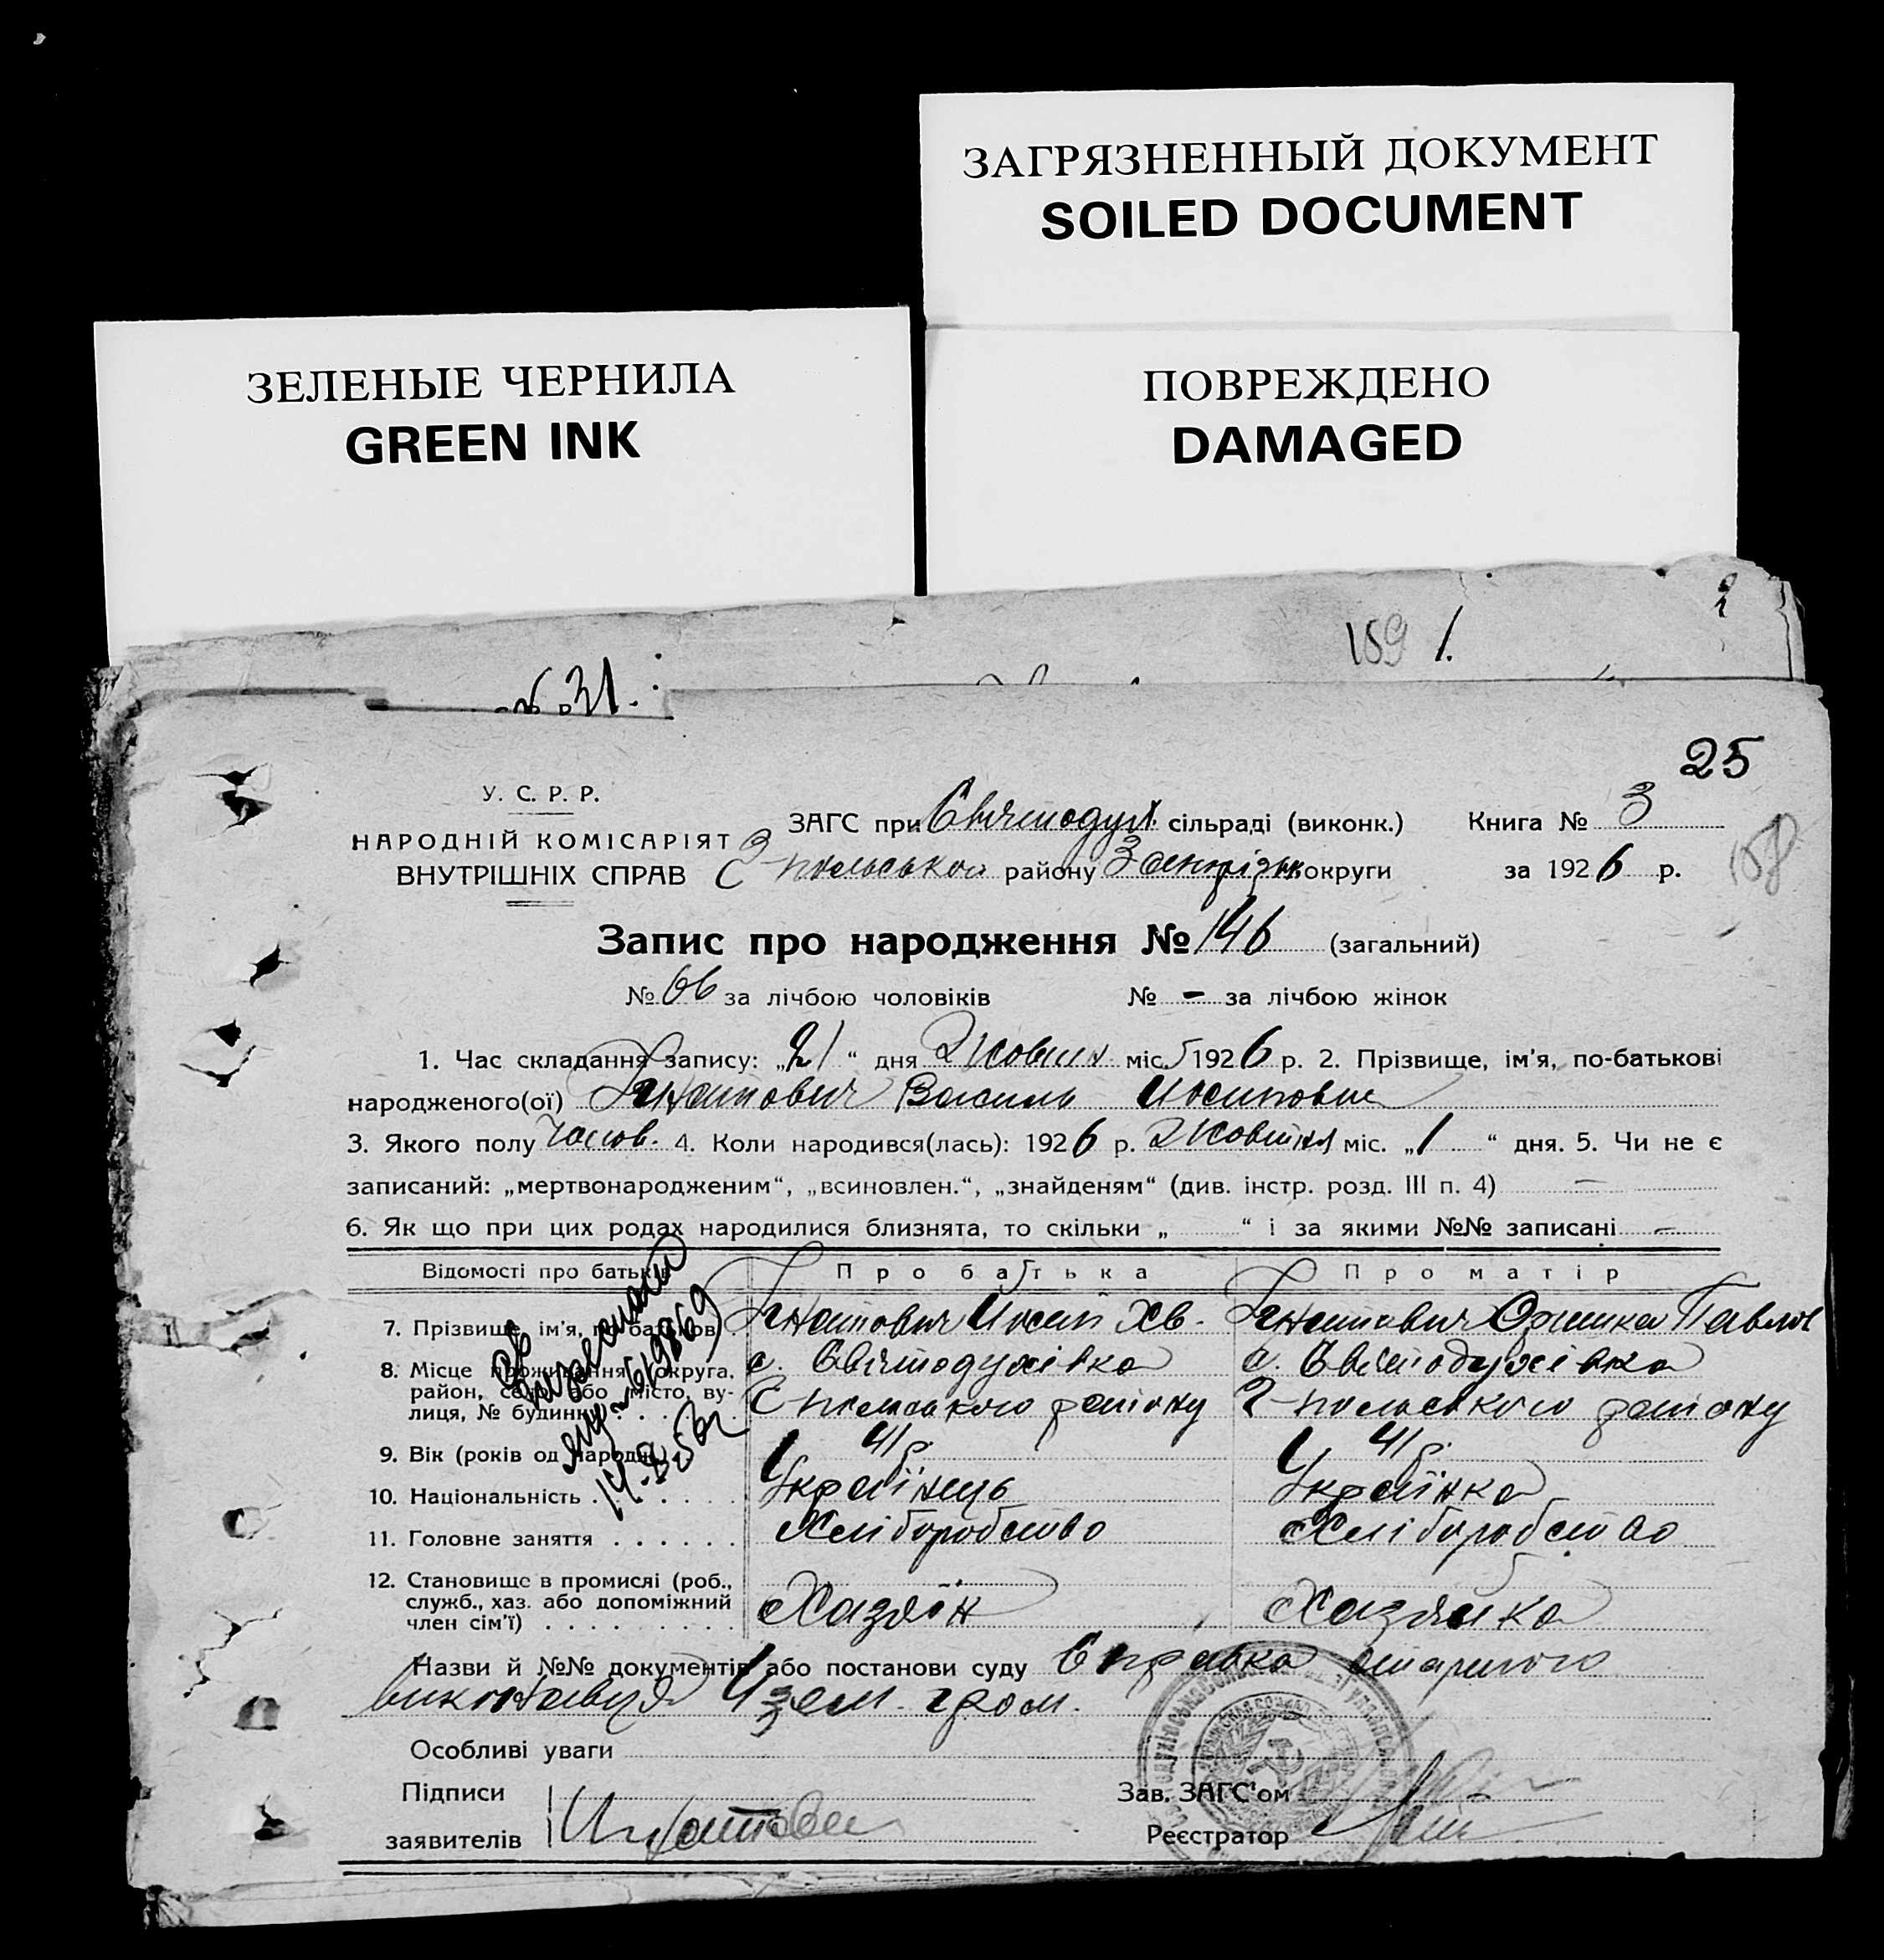 ЗАГРЯЗНЕННЫЙ ДОКУМЕНТ
SOILED DOCUMENT
ЗЕЛЕНЫЕ ЧЕРНИЛА
GREEN INK
ПОВРЕЖДЕНО
DAMAGED
159 1.
31.
25
У. С. Р. Р.
НАРОДНІЙ КОМІСАРІЯТ
ВНУТРІШНІХ СПРАВ
ЗАГС при Святодух. сільраді (виконк.) Книга № 3
польського району округи за 1926 р.
158
Запис про народження № 146 (загальний)
№ 66 за лічбою чоловіків № - за лічбою жінок
1. Час складання запису: „21“ дня Жовтня міс. 1926 р. 2. Прізвище, ім'я, по-батькові
народженого(ої) Ігнатович Василь Йосипович
3. Якого полу чолов. 4. Коли народився(лась): 1926 р. Жовтня міс. „1“ дня. 5. Чи не є
записаний: „мертвонародженим“, „всиновлен.“, „знайденям“ (див. інстр. розд. III п. 4) —
6. Як що при цих родах народилися близнята, то скільки „ “ і за якими №№ записані —
Відомості про батьків Про батька Про матір
7. Прізвище, ім'я, по батькові Ігнатович Йосип Хв. Ігнатович Оришка Павлов
8. Місце проживання (округа, с. Святодухівка с. Святодухівка
район, село або місто, ву-
лиця, № будинку) польського району польського району
9. Вік (років од народж.) 41 р. 41 р.
10. Національність Українець Українка
11. Головне заняття Хліборобство Хліборобство
12. Становище в промислі (роб.,
служб., хаз. або допоміжний Хазяїн Хазяйка
член сім'ї)
Назви й №№ документів або постанови суду Справка старшого
виконавця 4 зем. гром.
Особливі уваги
Підписи Зав. ЗАГС'ом
заявителів Игнатови Реєстратор